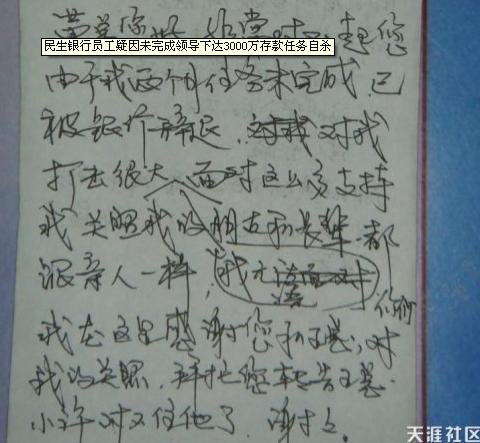 非常对不起您
民生银行员工疑因未完成领导下达3000万存款任务自杀
由于我两个月任务未完成,已
被银行辞退,对我
打击很大,面对这么多支持
我关照我的朋友和长辈都
跟亲人一样,我无法面对
你们
我在这里感谢您和王总,对
我的关照,拜托您转告王总
小许对不住他了,谢谢
天涯社区